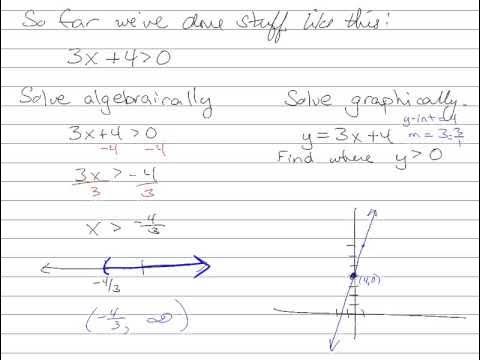 So far we've done stuff like this:
3x+4>0
Solve algebraically
3x+4>0
-4 -4
3x > -4
3 3
x > -4/3
-4/3
(-4/3, ∞)
Solve graphically.
y-int=4
y=3x+4 m=3=3/1
Find where y>0
(4,0)